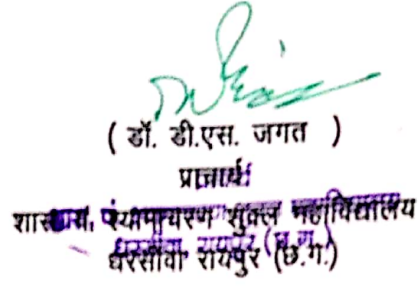 ( डॉ. डी.एस. जगत )
प्राचार्य
शास. पं. श्यामाचरण शुक्ल महाविद्यालय
धरसींवा रायपुर (छ.ग.)